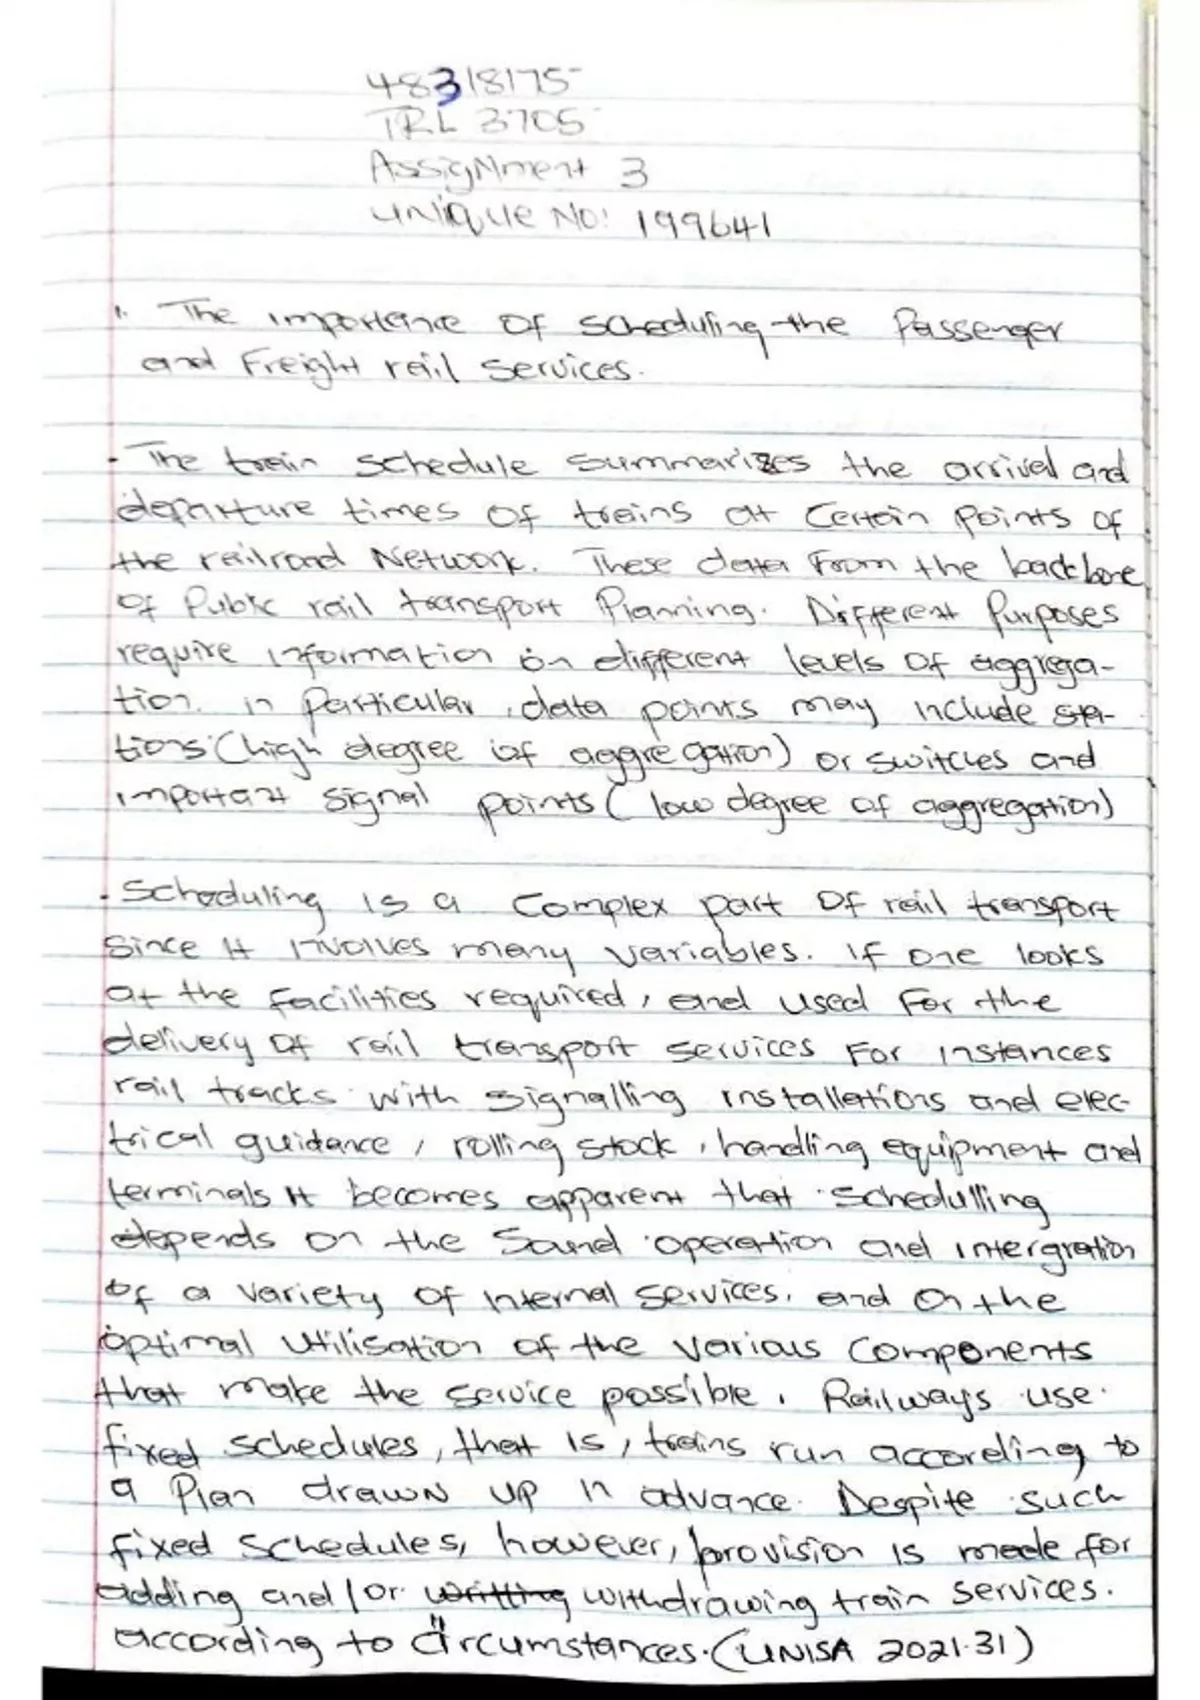 48318175
TRL 3705
Assignment 3
unique No: 199641
1. The importance of scheduling the Passenger
and Freight rail services.
- The train schedule summarizes the arrival and
departure times of trains at certain points of
the railroad Network. These data from the backbone
of Public rail transport Planning. Different Purposes
require information on different levels of aggrega-
tion. in particular, data points may include sta-
tions (high degree of aggregation) or switches and
important signal points (low degree of aggregation)
- Scheduling is a complex part of rail transport
since it involves many variables. If one looks
at the facilities required, and used for the
delivery of rail transport services for instances
rail tracks with signalling installations and elec-
trical guidance, rolling stock, handling equipment and
terminals it becomes apparent that schedulling
depends on the sound operation and intergration
of a variety of internal services. and on the
optimal utilisation of the various components
that make the service possible. Railways use
fixed schedules, that is, trains run according to
a plan drawn up in advance. Despite such
fixed schedules, however, provision is made for
adding and/or writting withdrawing train services.
according to circumstances. (UNISA 2021.31)